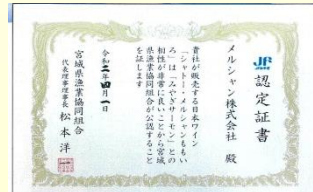 JF
認定証書
メルシャン株式会社 殿
貴社が販売する日本ワイン
「シャトー・メルシャンももい
ろ」は「みやぎサーモン」との
相性が非常に良いことから宮城
県漁業協同組合が公認すること
を証します
令和二年四月一日
宮城県漁業協同組合
代表理事理事長 松本洋一